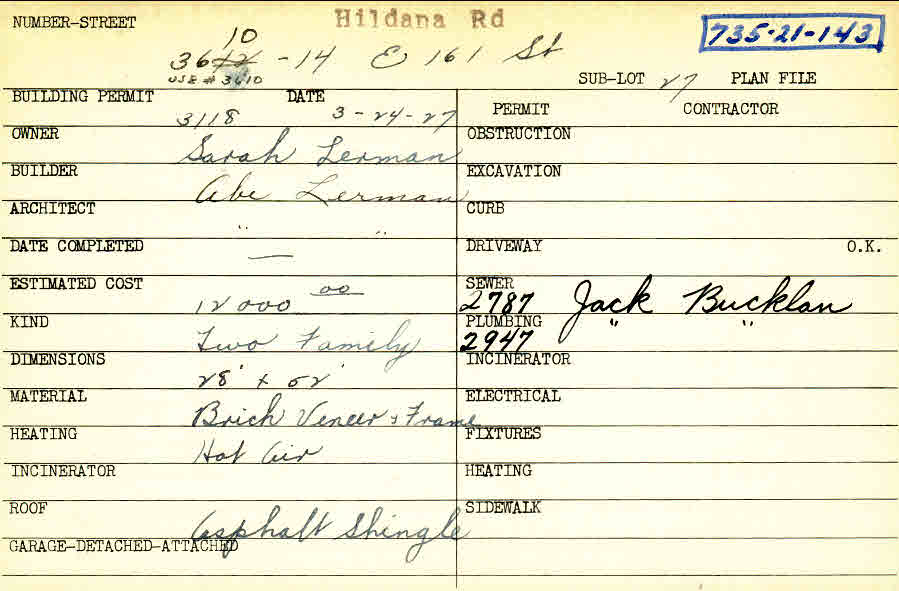 NUMBER-STREET Hildana Rd
735-21-143
10
3612 -14 E 161 St
USE # 3610
SUB-LOT 27 PLAN FILE
BUILDING PERMIT 3118 DATE 3-24-27
PERMIT CONTRACTOR
OWNER Sarah Lerman
OBSTRUCTION
BUILDER Abe Lerman
EXCAVATION
ARCHITECT " "
CURB
DATE COMPLETED —
DRIVEWAY O.K.
ESTIMATED COST 12000 00
SEWER 2787 Jack Bucklan
KIND Two Family
PLUMBING 2947 " "
DIMENSIONS 28' x 52'
INCINERATOR
MATERIAL Brick Veneer & Frame
ELECTRICAL
HEATING Hot Air
FIXTURES
INCINERATOR
HEATING
ROOF Asphalt Shingle
SIDEWALK
GARAGE-DETACHED-ATTACHED